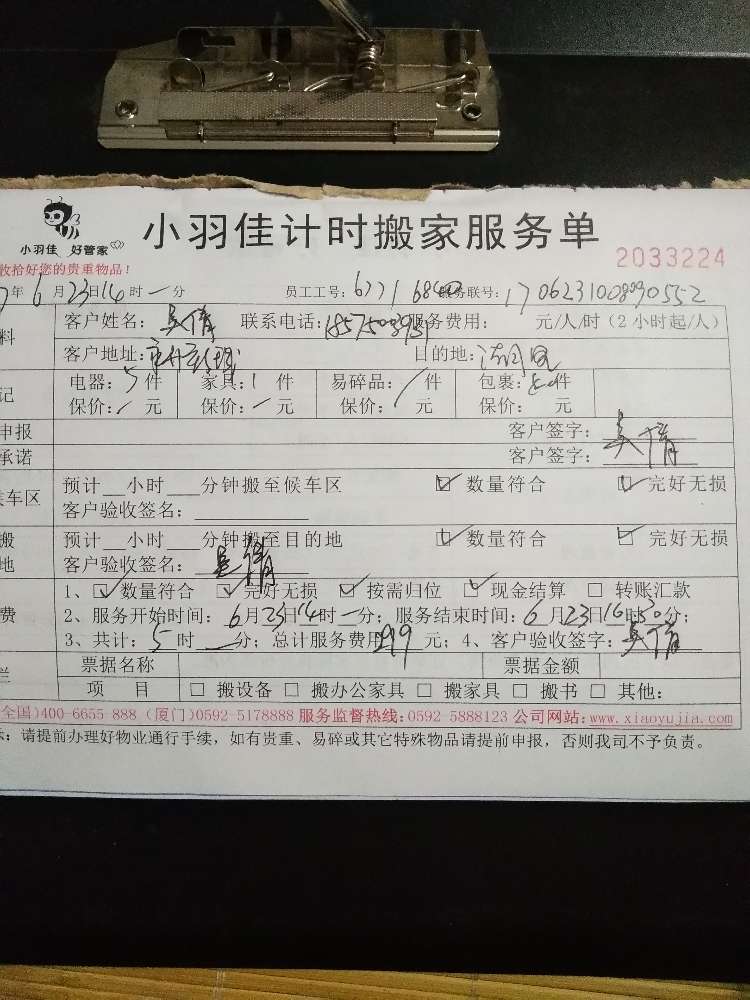 小羽佳 好管家
小羽佳计时搬家服务单
2033224
收拾好您的贵重物品！
年6月23日14时一分 员工工号：6771 6840 服务联号：1706231008970552
客户姓名：吴倩 联系电话： 服务费用： 元/人/时（2小时起/人）
客户地址： 目的地：
电器：5件 家具：1件 易碎品：/件 包裹： 件
保价：/元 保价：/元 保价： 元 保价： 元
申报 客户签字：吴倩
承诺 客户签字：
候车区 预计__小时___分钟搬至候车区 ☑ 数量符合 ☑ 完好无损
客户验收签名：
搬 预计__小时___分钟搬至目的地 ☑ 数量符合 ☑ 完好无损
地 客户验收签名：吴倩
1、☑ 数量符合 ☑ 完好无损 ☑ 按需归位 ☑ 现金结算 □ 转账汇款
费 2、服务开始时间：6月23日14时一分；服务结束时间：6月23日16时30分；
3、共计：5时一分；总计服务费用299元；4、客户验收签字：吴倩
栏 票据名称 票据金额
项 目 □ 搬设备 □ 搬办公家具 □ 搬家具 □ 搬书 □ 其他：
全国)400-6655-888 (厦门)0592-5178888 服务监督热线:0592-5888123 公司网站:www.xiaoyujia.com
示：请提前办理好物业通行手续，如有贵重、易碎或其它特殊物品请提前申报，否则我司不予负责。